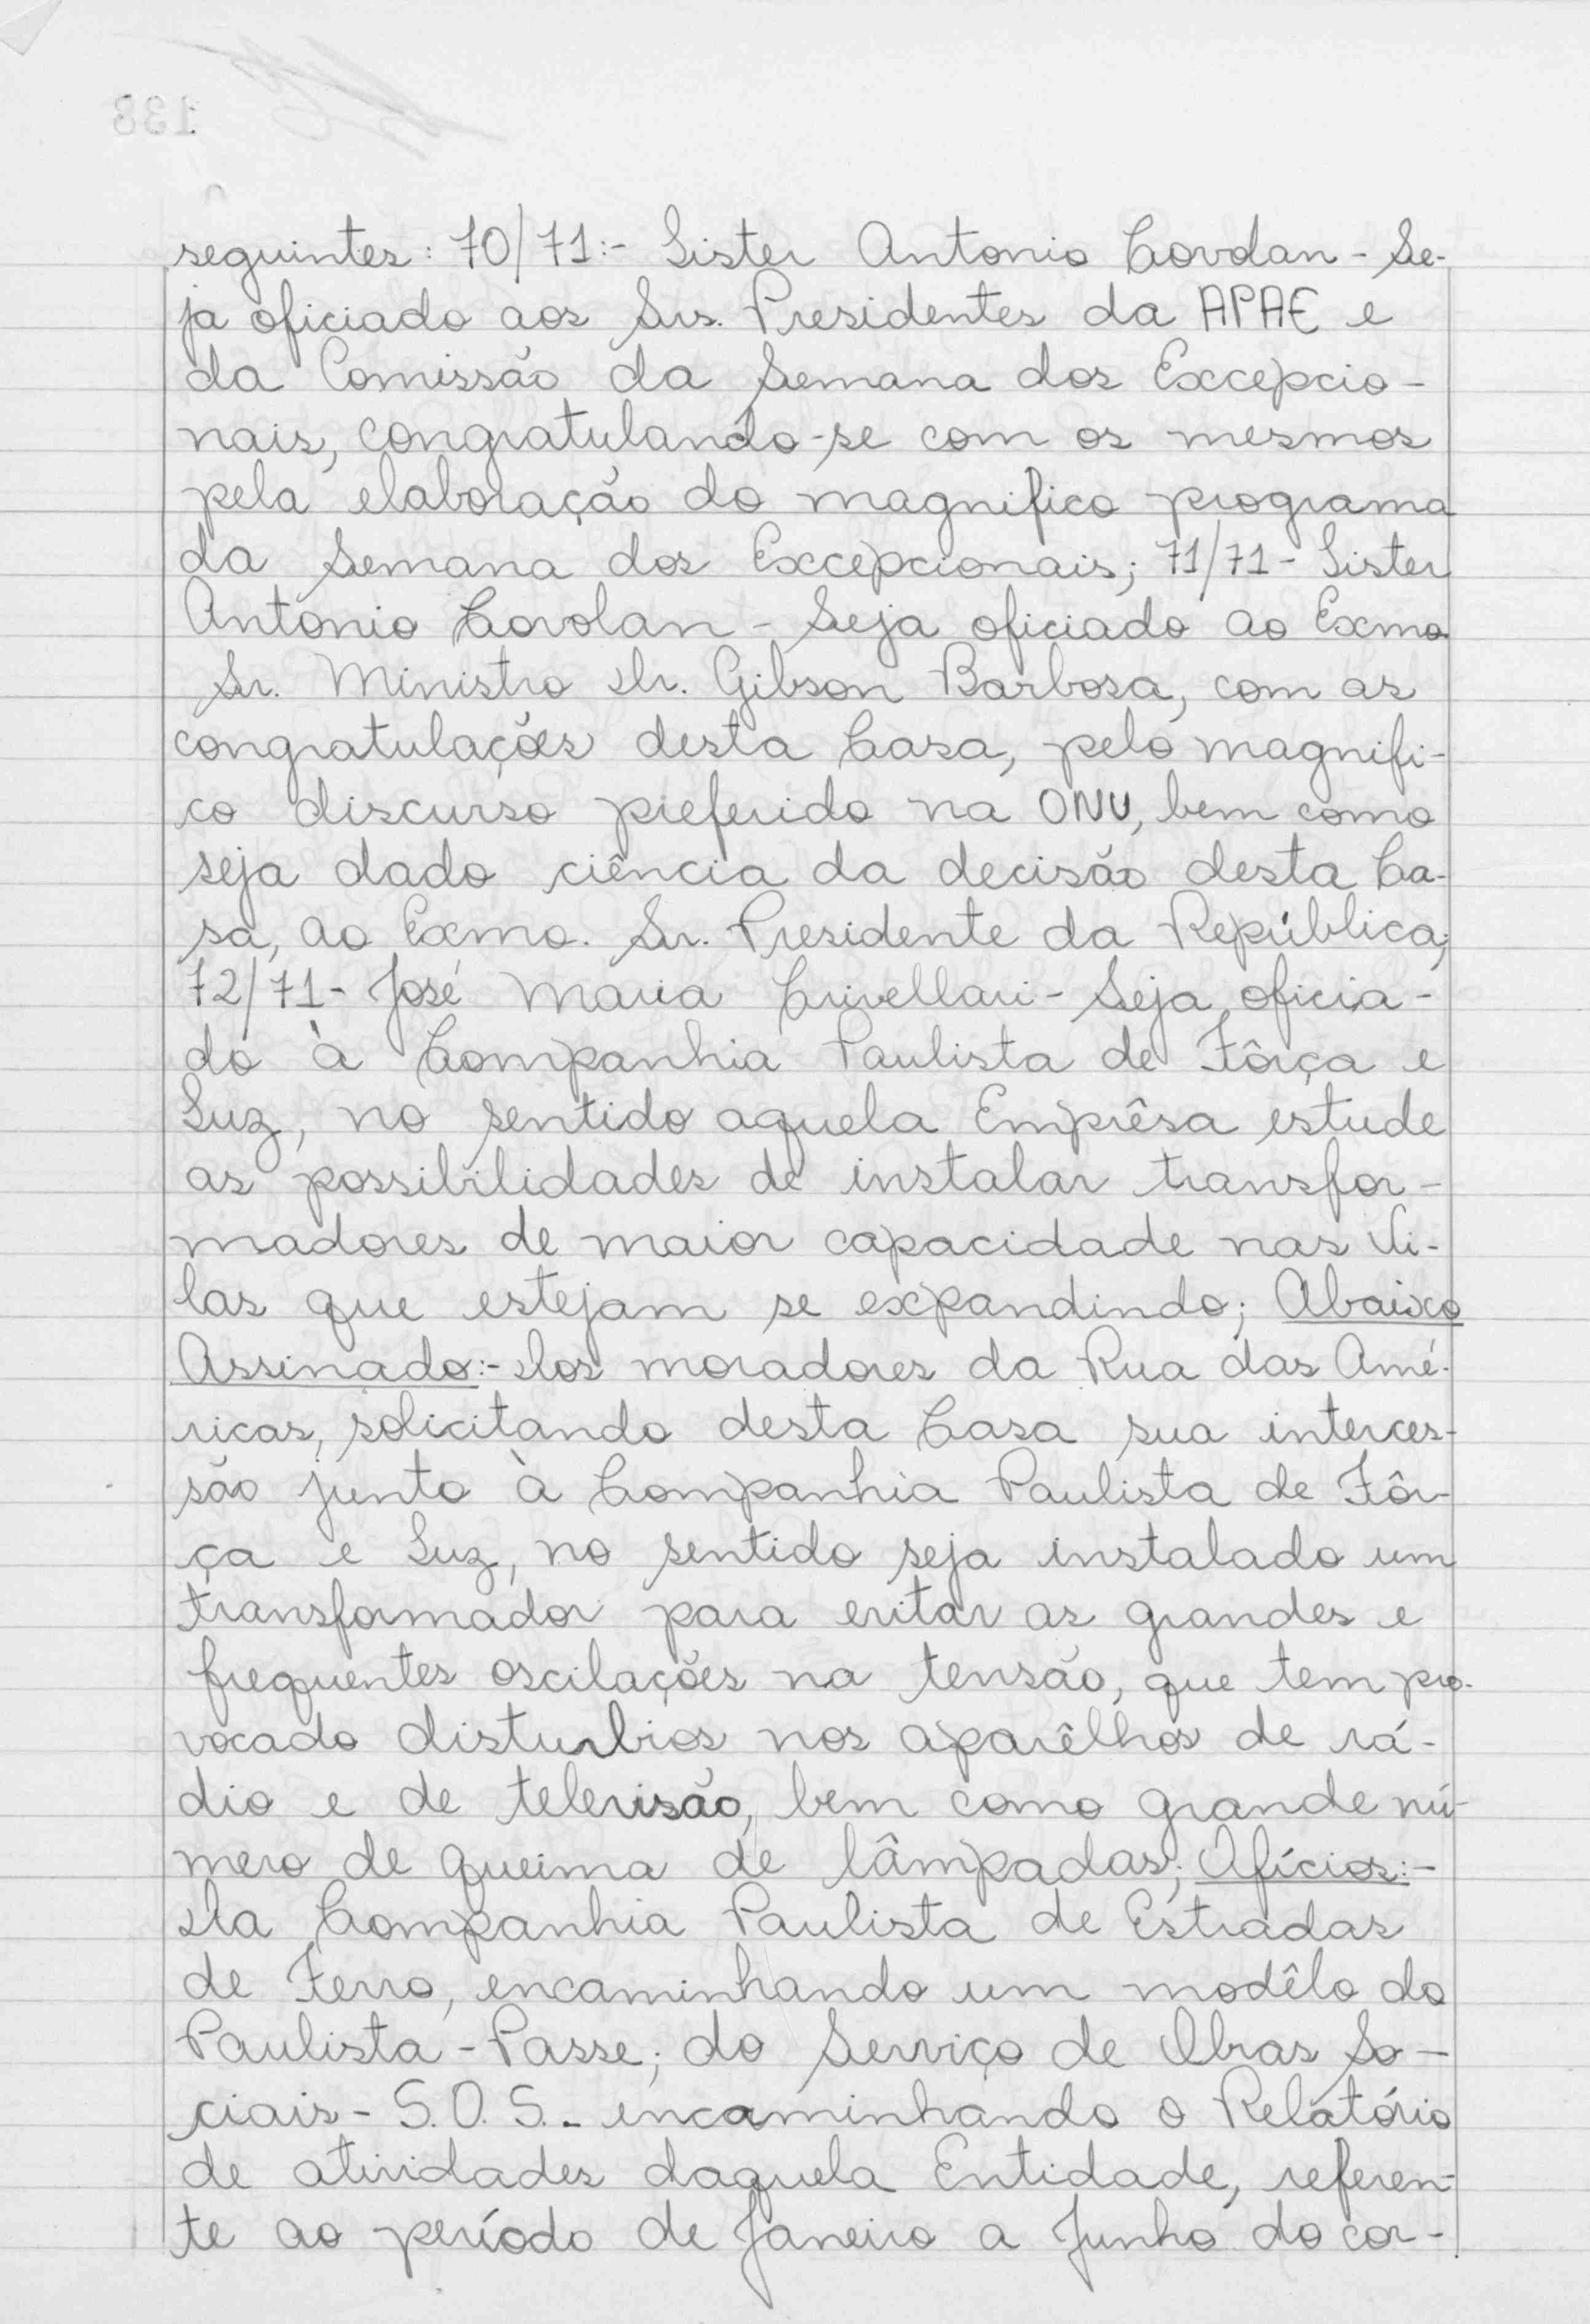 seguintes: 70/71:- Sister Antonio Covolan - Se-
ja oficiado aos Srs. Presidentes da APAE e
da Comissão da Semana dos Excepcio-
nais, congratulando-se com os mesmos
pela elaboração do magnifico programa
da Semana dos Excepcionais; 71/71 - Sister
Antonio Covolan - Seja oficiado ao Exmo.
Sr. Ministro Dr. Gibson Barbosa, com as
congratulações desta Casa, pelo magnifi-
co discurso preferido na ONU, bem como
seja dado ciência da decisão desta Ca-
sa, ao Exmo. Sr. Presidente da República;
72/71 - José Maria Crivellari - Seja oficia-
do à Companhia Paulista de Fôrça e
Luz, no sentido aquela Emprêsa estude
as possibilidades de instalar transfor-
madores de maior capacidade nas Vi-
las que estejam se expandindo; Abaixo
Assinado:- Dos moradores da Rua das Amé-
ricas, solicitando desta Casa sua interces-
são junto à Companhia Paulista de Fôr-
ça e Luz, no sentido seja instalado um
transformador para evitar as grandes e
frequentes oscilações na tensão, que tem pro-
vocado disturbios nos aparêlhos de rá-
dio e de televisão, bem como grande nú-
mero de queima de lâmpadas; Ofícios:-
Da Companhia Paulista de Estradas
de Ferro, encaminhando um modêlo do
Paulista - Passe; do Serviço de Obras So-
ciais - S.O.S. - encaminhando o Relatório
de atividades daquela Entidade, referen-
te ao período de Janeiro a Junho do cor-